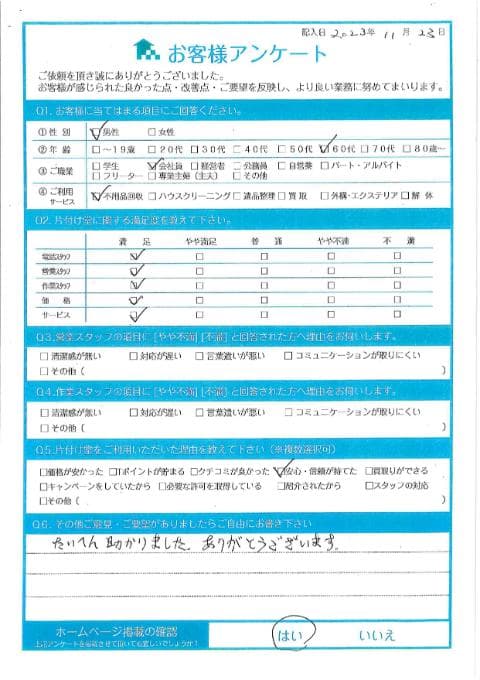 記入日 2023年 11月 23日
お客様アンケート
ご依頼を頂き誠にありがとうございました。
お客様が感じられた良かった点・改善点・ご要望を反映し、より良い業務に努めてまいります。
Q1. お客様に当てはまる項目にご回答ください。
①性 別 ☑男性 □女性
②年 齢 □～19歳 □20代 □30代 □40代 □50代 ☑60代 □70代 □80歳～
③ご職業 □学生 ☑会社員 □経営者 □公務員 □自営業 □パート・アルバイト
□フリーター □専業主婦（主夫） □その他
④ご利用サービス ☑不用品回収 □ハウスクリーニング □遺品整理 □買取 □外構・エクステリア □解体
Q2. 片付け堂に関する満足度を教えて下さい。
満足 やや満足 普通 やや不満 不満
電話スタッフ ☑ □ □ □ □
営業スタッフ ☑ □ □ □ □
作業スタッフ ☑ □ □ □ □
価格 ☑ □ □ □ □
サービス ☑ □ □ □ □
Q3. 営業スタッフの項目に［やや不満］［不満］と回答された方へ理由をお伺いします。
□清潔感が無い □対応が遅い □言葉遣いが悪い □コミュニケーションが取りにくい
□その他（ ）
Q4. 作業スタッフの項目に［やや不満］［不満］と回答された方へ理由をお伺いします。
□清潔感が無い □対応が遅い □言葉遣いが悪い □コミュニケーションが取りにくい
□その他（ ）
Q5. 片付け堂をご利用いただいた理由を教えて下さい（※複数選択可）
□価格が安かった □Tポイントが貯まる □クチコミが良かった ☑安心・信頼が持てた □買取りができる
□キャンペーンをしていたから □必要な許可を取得している □紹介されたから □スタッフの対応
□その他（ ）
Q6. その他ご意見・ご要望がありましたらご自由にお書き下さい
たいへん助かりました。ありがとうございます。
ホームページ掲載の確認 はい いいえ
お客様アンケートを掲載させて頂いても宜しいでしょうか？